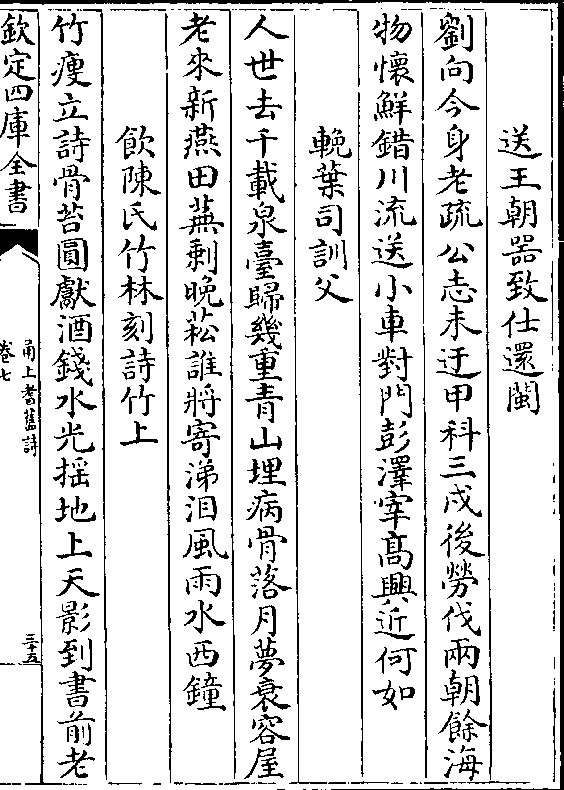 送王朝器致仕還閩
劉向今身老疏公志未迂甲科三戍後勞伐兩朝餘海
物懷鮮錯川流送小車對門彭澤宰髙興近何如
輓葉司訓父
人世去千載泉臺歸幾重青山埋病骨落月夢衰容屋
老來新燕田蕪剩晚菘誰將寄涕泪風雨水西鐘
飲陳氏竹林刻詩竹上
竹瘦立詩骨苔圓獻酒錢水光揺地上天影到書前老
欽定四庫全書
甬上耆舊詩
卷七
三十五